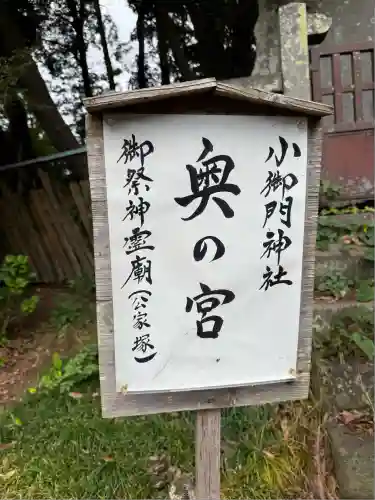 小御門神社
奥の宮
御祭神霊廟(公家塚)